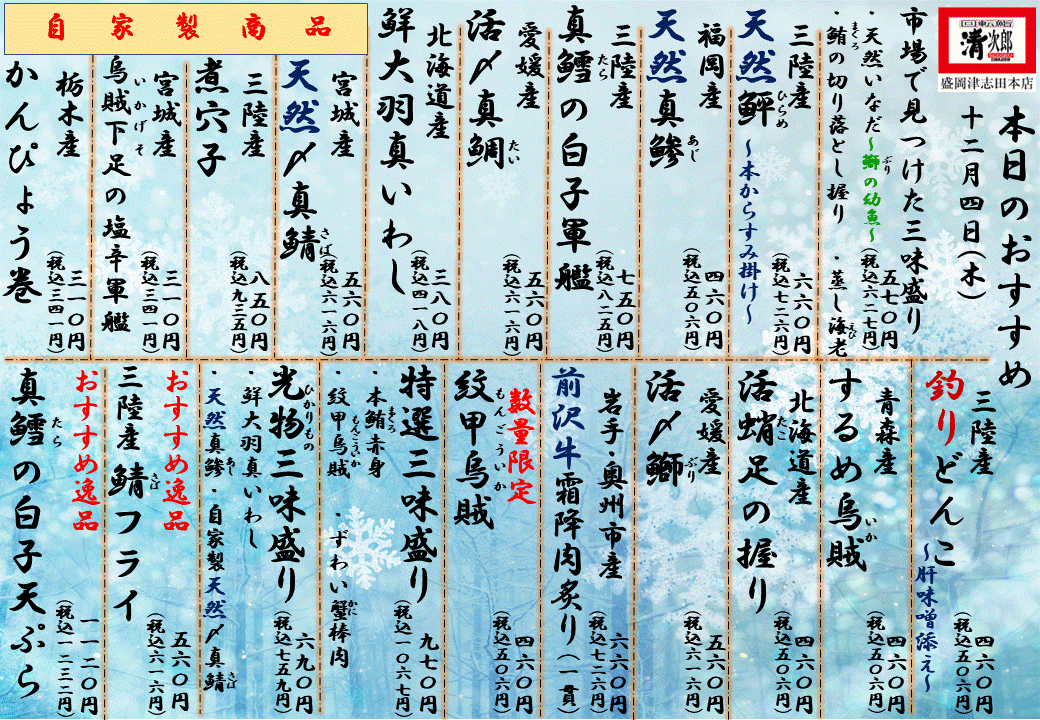 回転鮨
清次郎
盛岡津志田本店
本日のおすすめ
十二月四日(木)
市場で見つけた三味盛り
・天然いなだ~鰤の幼魚~
ぶり
・鮪の切り落とし握り ・蒸し海老
まぐろ
えび
五七〇円
(税込六二七円)
三陸産
天然鮃
ひらめ
~本からすみ掛け~
六六〇円
(税込七二六円)
福岡産
天然真鯵
あじ
四六〇円
(税込五〇六円)
三陸産
真鱈の白子軍艦
たら
七五〇円
(税込八二五円)
愛媛産
活〆真鯛
たい
五六〇円
(税込六一六円)
北海道産
鮮大羽真いわし
三八〇円
(税込四一八円)
自家製商品
宮城産
天然〆真鯖
さば
五六〇円
(税込六一六円)
三陸産
煮穴子
八五〇円
(税込九三五円)
宮城産
烏賊下足の塩辛軍艦
いかげそ
三一〇円
(税込三四一円)
栃木産
かんぴょう巻
三一〇円
(税込三四一円)
三陸産
釣りどんこ
~肝味噌添え~
四六〇円
(税込五〇六円)
青森産
するめ烏賊
いか
四六〇円
(税込五〇六円)
北海道産
活蛸足の握り
たこ
四六〇円
(税込五〇六円)
愛媛産
活〆鰤
ぶり
五六〇円
(税込六一六円)
岩手・奥州市産
前沢牛霜降肉炙り(一貫)
六六〇円
(税込七二六円)
数量限定
紋甲烏賊
もんごういか
四六〇円
(税込五〇六円)
特選三味盛り
・本鮪赤身
まぐろ
・紋甲烏賊 ・ずわい蟹棒肉
もんごういか
かに
九七〇円
(税込一〇六七円)
光物三味盛り
ひかりもの
・鮮大羽真いわし
・天然真鯵・自家製天然〆真鯖
あじ
さば
六九〇円
(税込七五九円)
おすすめ逸品
三陸産 鯖フライ
さば
五六〇円
(税込六一六円)
おすすめ逸品
真鱈の白子天ぷら
たら
一一二〇円
(税込一二三二円)